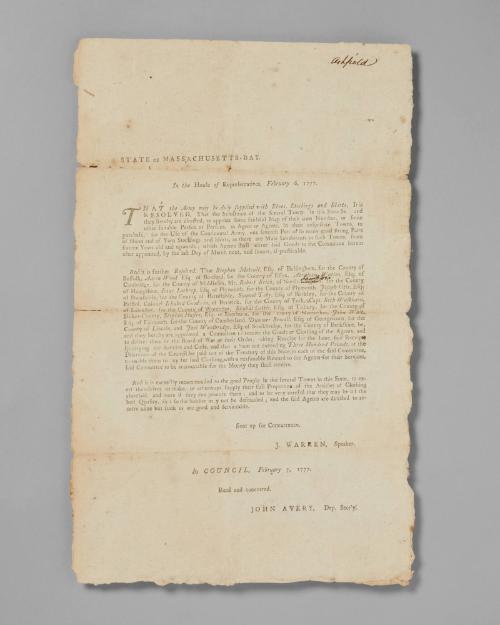 Ashfield
STATE OF MASSACHUSETTS-BAY.
In the House of Representatives, February 6, 1777.
THAT the Army may be duly supplied with Shoes, Stockings and Shirts, It is
RESOLVED, That the Selectmen of the several Towns in this State be, and
they hereby are directed, to appoint some faithful Man of their own Number, or some
other suitable Person or Persons, as Agent or Agents, in their respective Towns, to
purchase, for the Use of the Continental Army, one seventh Part of as many good strong Pairs
of Shoes and of Two Stockings and Shirts, as there are Male Inhabitants in such Towns, from
sixteen Years old and upwards; which Agents shall deliver said Goods to the Committee herein
after appointed, by the Day of March next, and sooner, if practicable.
And it is further Resolved, That Stephen Metcalf, Esq; of Bellingham, for the County of
Suffolk, Aaron Wood Esq; of Boxford for the County of Essex, Esq; of
Cambridge, for the County of Middlesex, Mr. Robert for the County
of Hampshire, Esq; of Plymouth, for the County of Plymouth, Esq;
of Barnstable, for the County of Barnstable, Esq; of Berkley, for the County of
Bristol, Esq; of for the County of York, Capt. Seth Washburn,
of Leicester, for the County of Worcester, Esq; of Tisbury, for the County of
County, Stephen Hussey, Esq; of for the County of John Wait,
Esq; of for the County of Cumberland, Esq; of Georgetown, for the
County of Lincoln, and Esq; of Stockbridge, for the County of Berkshire, be,
and they hereby are appointed, a Committee to receive the Goods or Clothing of the Agents, and
to deliver them to the Board of War or their Order, taking Receipts for the same, and
the and Cost, and that a Sum not exceeding Three Hundred Pounds, at the
Discretion of the Council be paid out of the Treasury of this State to each of the said Committee,
to enable them to pay for said Clothing, with a reasonable Reward to the Agents for their Services,
said Committee to be accountable for the Money they shall receive.
And it is earnestly recommended to the good People in the several Towns in this State, to
exert themselves to make, or otherwise supply their full Proportion of the Articles of Clothing
aforesaid, and more if they can procure them; and to be very careful that they may be all the
best Quality, that so the Soldier may not be defrauded; and the said Agents are directed to
receive none but such as are good and serviceable.
Sent up for Concurrence.
J. WARREN, Speaker.
In COUNCIL, February 7, 1777.
Read and concurred.
JOHN AVERY, Dep. Sec'y.